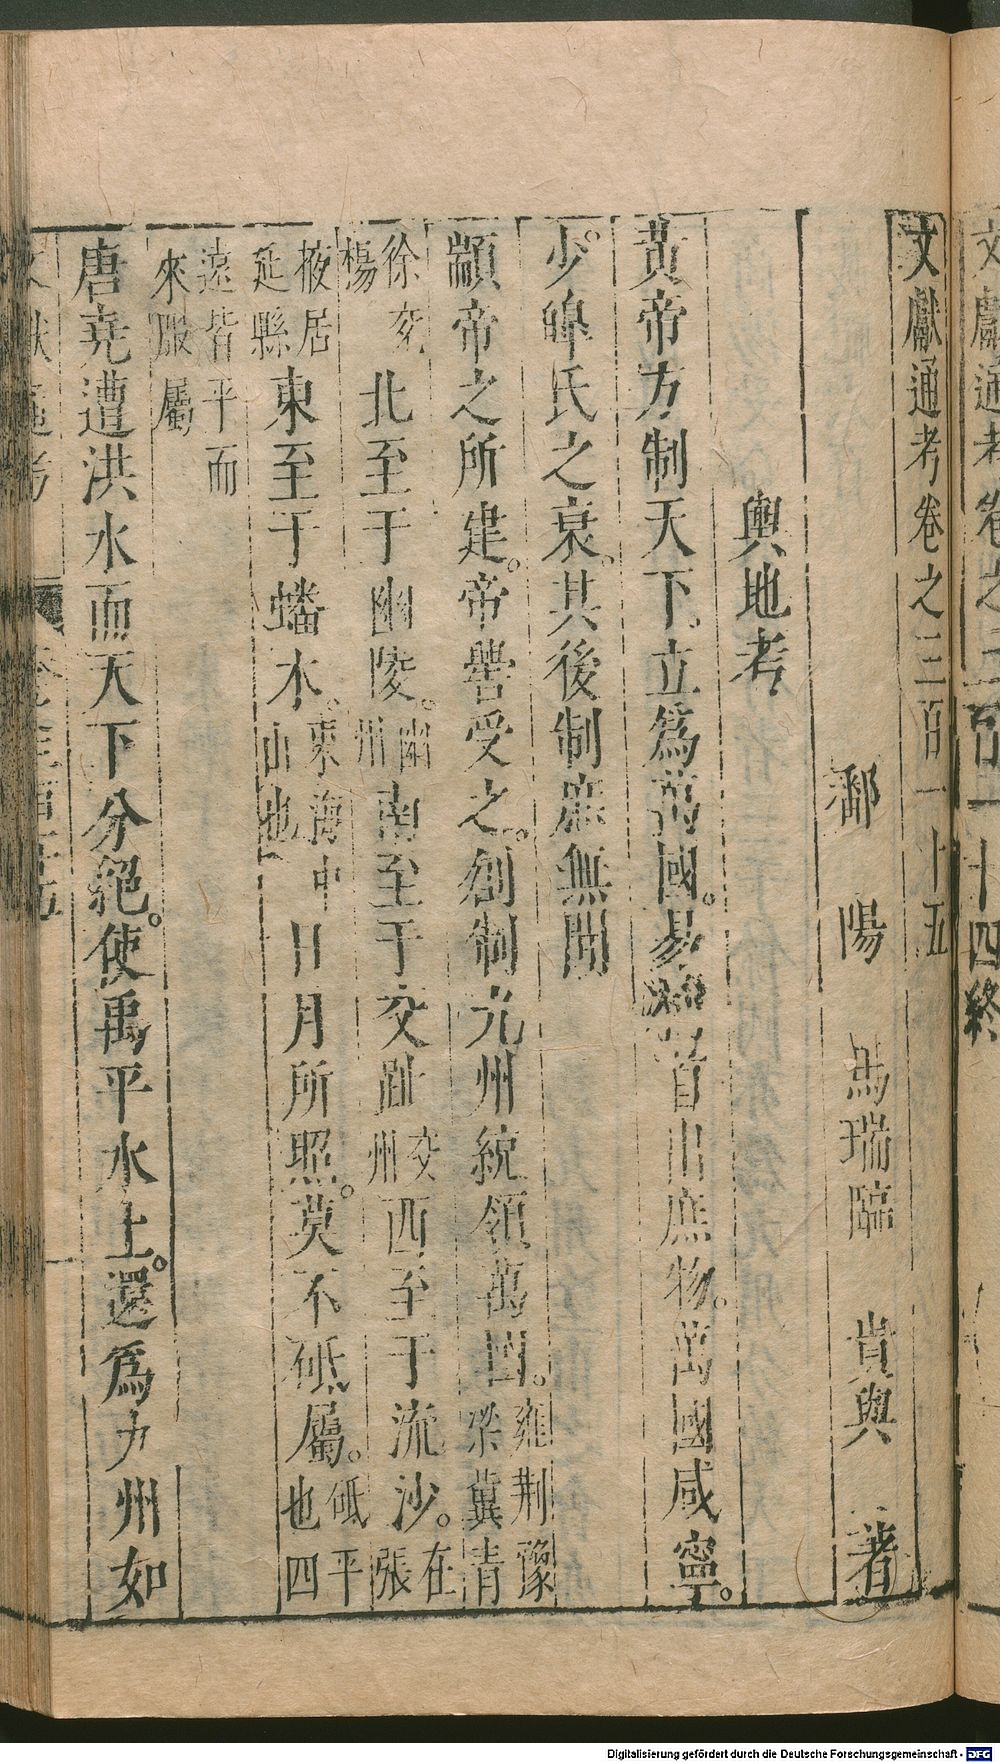 文獻通考卷之三百一十四終
文獻通考卷之三百一十五
鄱陽馬瑞臨貴與著
輿地考
黃帝方制天下立為萬國。易稱首出庶物。萬國咸寧。
少皞氏之衰。其後制度無聞
顓帝之所建。帝嚳受之。創制九州統領萬國。雍荆豫梁冀青
徐兗楊北至于幽陵。幽州南至于交趾交州西至于流沙。在張
掖居延縣東至于蟠木。東海中山也日月所照。莫不砥屬。砥平也四
遠皆平而來服屬
唐堯遭洪水而天下分絕。使禹平水土。還為九州如
Digitalisierung gefördert durch die Deutsche Forschungsgemeinschaft - DFG